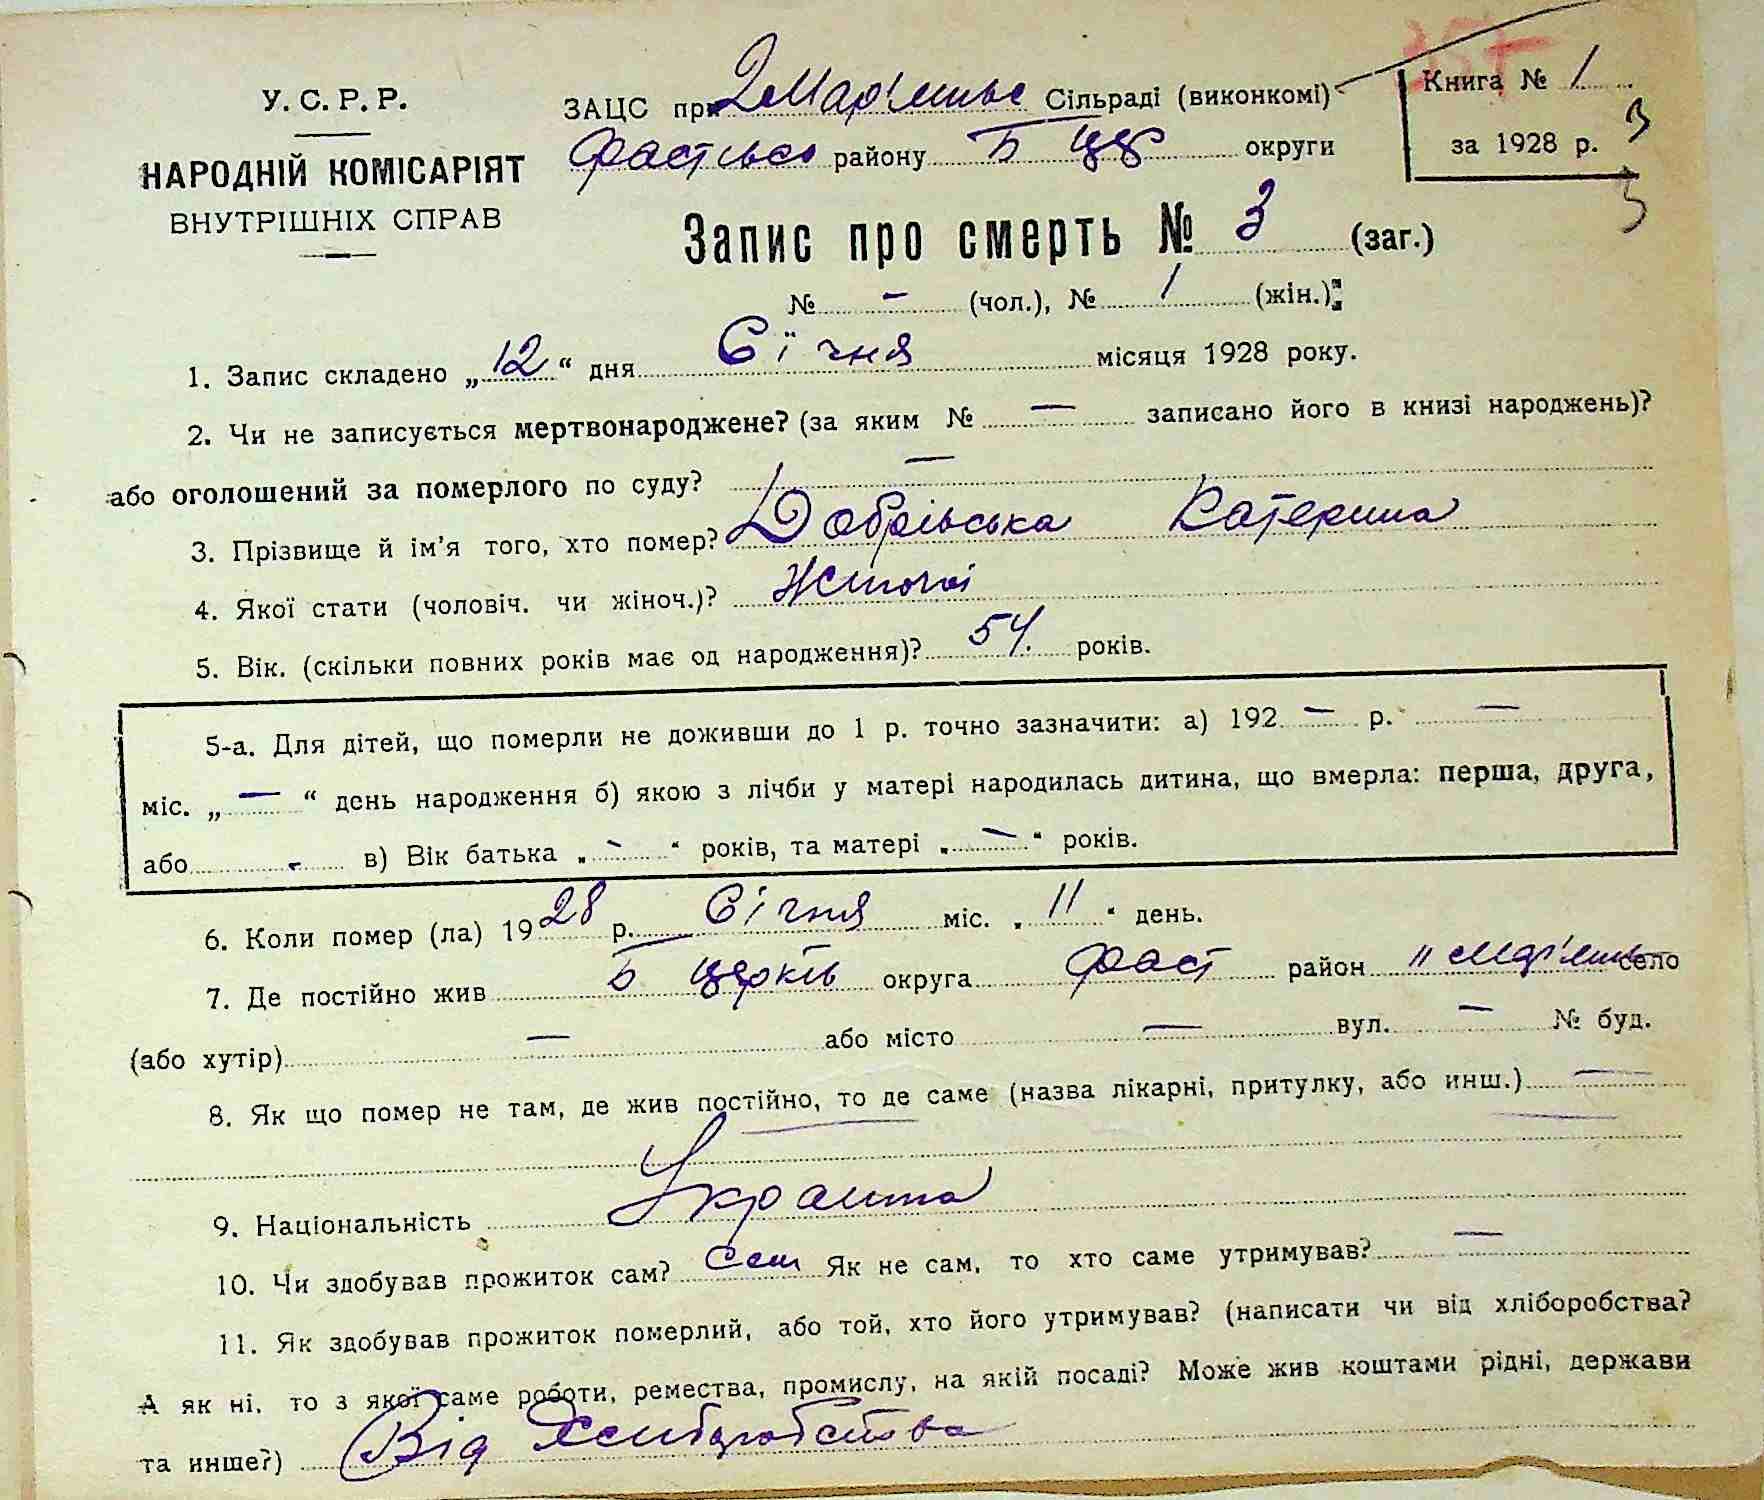 У. С. Р. Р.
НАРОДНІЙ КОМІСАРІЯТ
ВНУТРІШНІХ СПРАВ
ЗАЦС при Сільраді (виконкомі)
району Б округи
Книга № 1
за 1928 р.
3
Запис про смерть № 3 (заг.)
№ – (чол.), № 1 (жін.)
1. Запис складено „12“ дня Січня місяця 1928 року.
2. Чи не записується мертвонароджене? (за яким № — записано його в книзі народжень)?
або оголошений за померлого по суду? —
3. Прізвище й ім'я того, хто помер? Добрівська Катерина
4. Якої стати (чоловіч. чи жіноч.)? Жіночої
5. Вік. (скільки повних років має од народження)? 54. років.
5-а. Для дітей, що померли не доживши до 1 р. точно зазначити: а) 192 — р. —
міс. „—“ день народження б) якою з лічби у матері народилась дитина, що вмерла: перша, друга,
або - в) Вік батька „-“ років, та матері „—“ років.
6. Коли помер (ла) 1928 р. Січня міс. „11“ день.
7. Де постійно жив Б Церків округа Фаст район село
(або хутір) — або місто — вул. — № буд.
8. Як що помер не там, де жив постійно, то де саме (назва лікарні, притулку, або инш.) —
9. Національність
10. Чи здобував прожиток сам? Сам Як не сам, то хто саме утримував? —
11. Як здобував прожиток померлий, або той, хто його утримував? (написати чи від хліборобства?
А як ні, то з якої саме роботи, ремества, промислу, на якій посаді? Може жив коштами рідні, держави
та инше?) Від Хліборобства